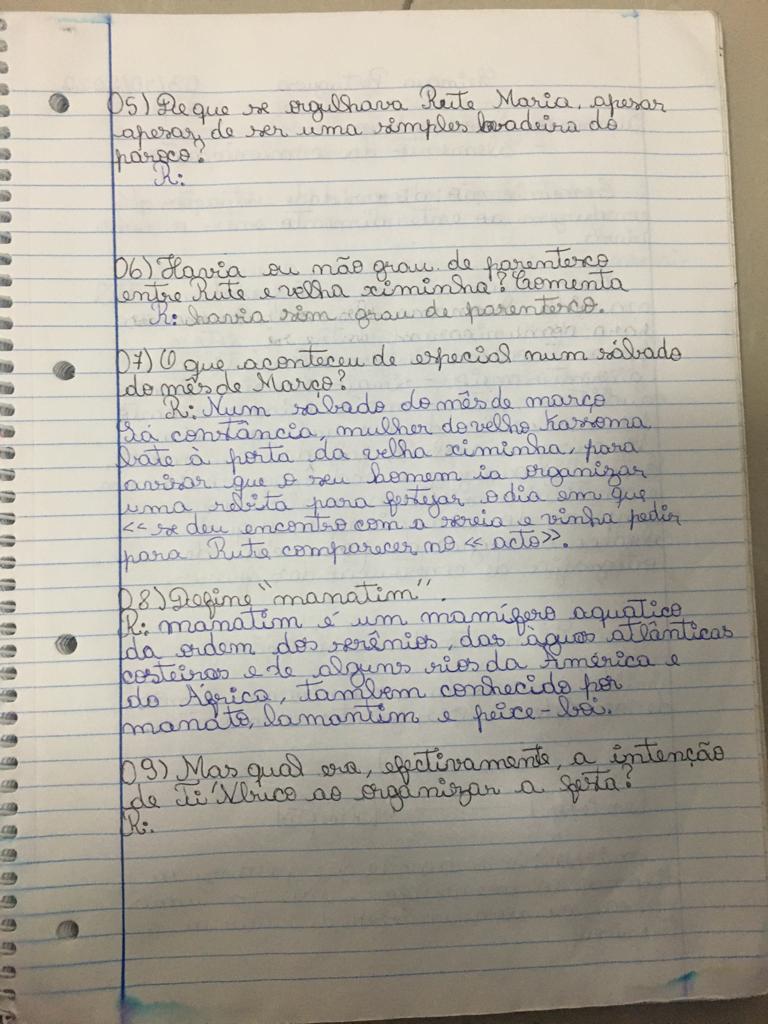 05) De que se orgulhava Rute Maria, apesar
apesar, de ser uma simples lavadeira do
pároco?
R:
06) Havia ou não grau de parentesco
entre Rute e velha ximinha? Comenta
R: havia sim grau de parentesco.
07) O que aconteceu de especial num sábado
do mês de Março?
R: Num sábado do mês de março
Sá constância, mulher do velho Kassoma
bate à porta da velha ximinha, para
avisar que o seu homem ia organizar
uma rebita para festejar o dia em que
<< se deu encontro com a sereia e vinha pedir
para Rute comparecer no << acto>>.
08) Define "manatim".
R: manatim é um mamífero aquatico
da ordem dos serênios, das àguas atlânticas
costeiras e de alguns rios da América e
do África, tambem conhecido por
manato, lamantim e peixe-boi.
09) Mas qual era, efectivamente, a intenção
de Ti'Nbrico ao organizar a festa?
R: